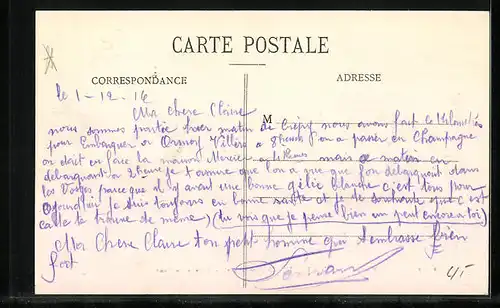 CARTE POSTALE
CORRESPONDANCE
ADRESSE
M
le 1-12.14
Ma chere Claire
nous sommes partie hier matin de Crépy nous avons fait le Kilometres
pour Embarquer a Ormoy Villers a 8 heures on a passer en Champagne
on étoit en face la maison Mercier a Reims mais ce matin en
debarquant a 2 heur je t'asure que l'on a que que l'on debarquent dans
les Vosges parceque il y avait une bonne gelée blanche c'est tous pour
ojourd'hui je suis toujours en bonne sante et je te souhaite que c'est
calle te trouve de meme) (tu vois que je pense bien un peut encore a toi)
Ma Chere Claire ton petit homme qui t'embrasse bien
fort
45